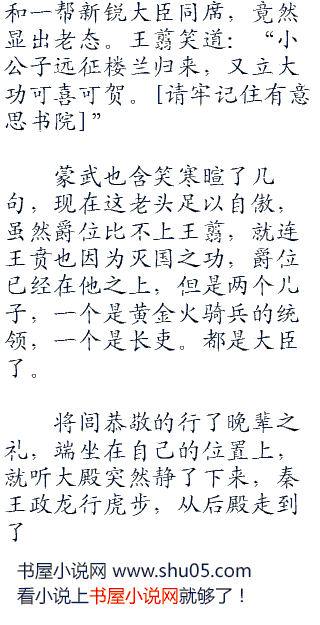 和一帮新锐大臣同席，竟然
显出老态。王翦笑道：“小
公子远征楼兰归来，又立大
功可喜可贺。[请牢记住有意
思书院]”
蒙武也含笑寒暄了几
句，现在这老头足以自傲，
虽然爵位比不上王翦，就连
王贲也因为灭国之功，爵位
已经在他之上，但是两个儿
子，一个是黄金火骑兵的统
领，一个是长吏。都是大臣
了。
将闾恭敬的行了晚辈之
礼，端坐在自己的位置上，
就听大殿突然静了下来，秦
王政龙行虎步，从后殿走到
了
书屋小说网 www.shu05.com
看小说上书屋小说网就够了！